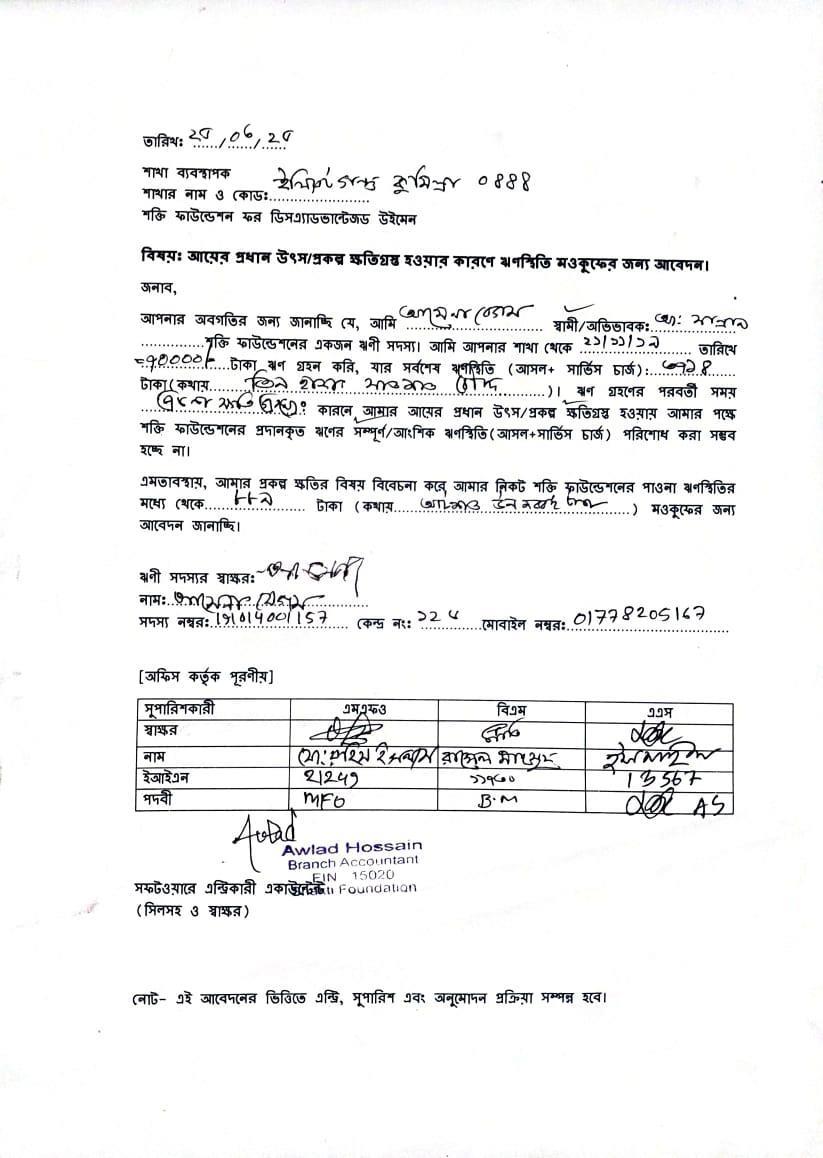 তারিখঃ ২৫/০৬/২৫
শাখা ব্যবস্থাপক
শাখার নাম ও কোডঃ কুমিল্লা ০৪৪৪
শক্তি ফাউন্ডেশন ফর ডিসএ্যাডভান্টেজড উইমেন
বিষয়ঃ আয়ের প্রধান উৎস/প্রকল্প ক্ষতিগ্রস্ত হওয়ার কারণে ঋণস্থিতি মওকুফের জন্য আবেদন।
জনাব,
আপনার অবগতির জন্য জানাচ্ছি যে, আমি আমেনা বেগম স্বামী/অভিভাবক: মোঃ
শক্তি ফাউন্ডেশনের একজন ঋণী সদস্য। আমি আপনার শাখা থেকে ২১/১১/১৯ তারিখে
=৭০০০০/- টাকা ঋণ গ্রহন করি, যার সর্বশেষ ঋণস্থিতি (আসল+ সার্ভিস চার্জ):
টাকা(কথায় তিন হাজার সাতশত )। ঋণ গ্রহণের পরবর্তী সময়
কারনে আমার আয়ের প্রধান উৎস/প্রকল্প ক্ষতিগ্রস্ত হওয়ায় আমার পক্ষে
শক্তি ফাউন্ডেশনের প্রদানকৃত ঋণের সম্পূর্ণ/আংশিক ঋণস্থিতি(আসল+সার্ভিস চার্জ) পরিশোধ করা সম্ভব
হচ্ছে না।
এমতাবস্থায়, আমার প্রকল্প ক্ষতির বিষয় বিবেচনা করে আমার নিকট শক্তি ফাউন্ডেশনের পাওনা ঋণস্থিতির
মধ্যে থেকে ৮৮৯ টাকা (কথায় আটশত উন নব্বই টাকা) মওকুফের জন্য
আবেদন জানাচ্ছি।
ঋণী সদস্যর স্বাক্ষর:
নাম: আমেনা বেগম
সদস্য নম্বর: 191014001157 কেন্দ্র নং: মোবাইল নম্বর: 01778205167
[অফিস কর্তৃক পূরণীয়]
সুপারিশকারী এমএফও বিএম এএস
স্বাক্ষর
নাম মো: রহিম ইসলাম রাসেল মাহমুদ ইসমাইল
ইআইএন 21249 13567
পদবী MFO B.M AS
Awlad
Awlad Hossain
Branch Accountant
EIN 15020
সফটওয়ারে এন্ট্রিকারী একাউন্টেন্ট Foundation
(সিলসহ ও স্বাক্ষর)
নোট- এই আবেদনের ভিত্তিতে এন্ট্রি, সুপারিশ এবং অনুমোদন প্রক্রিয়া সম্পন্ন হবে।